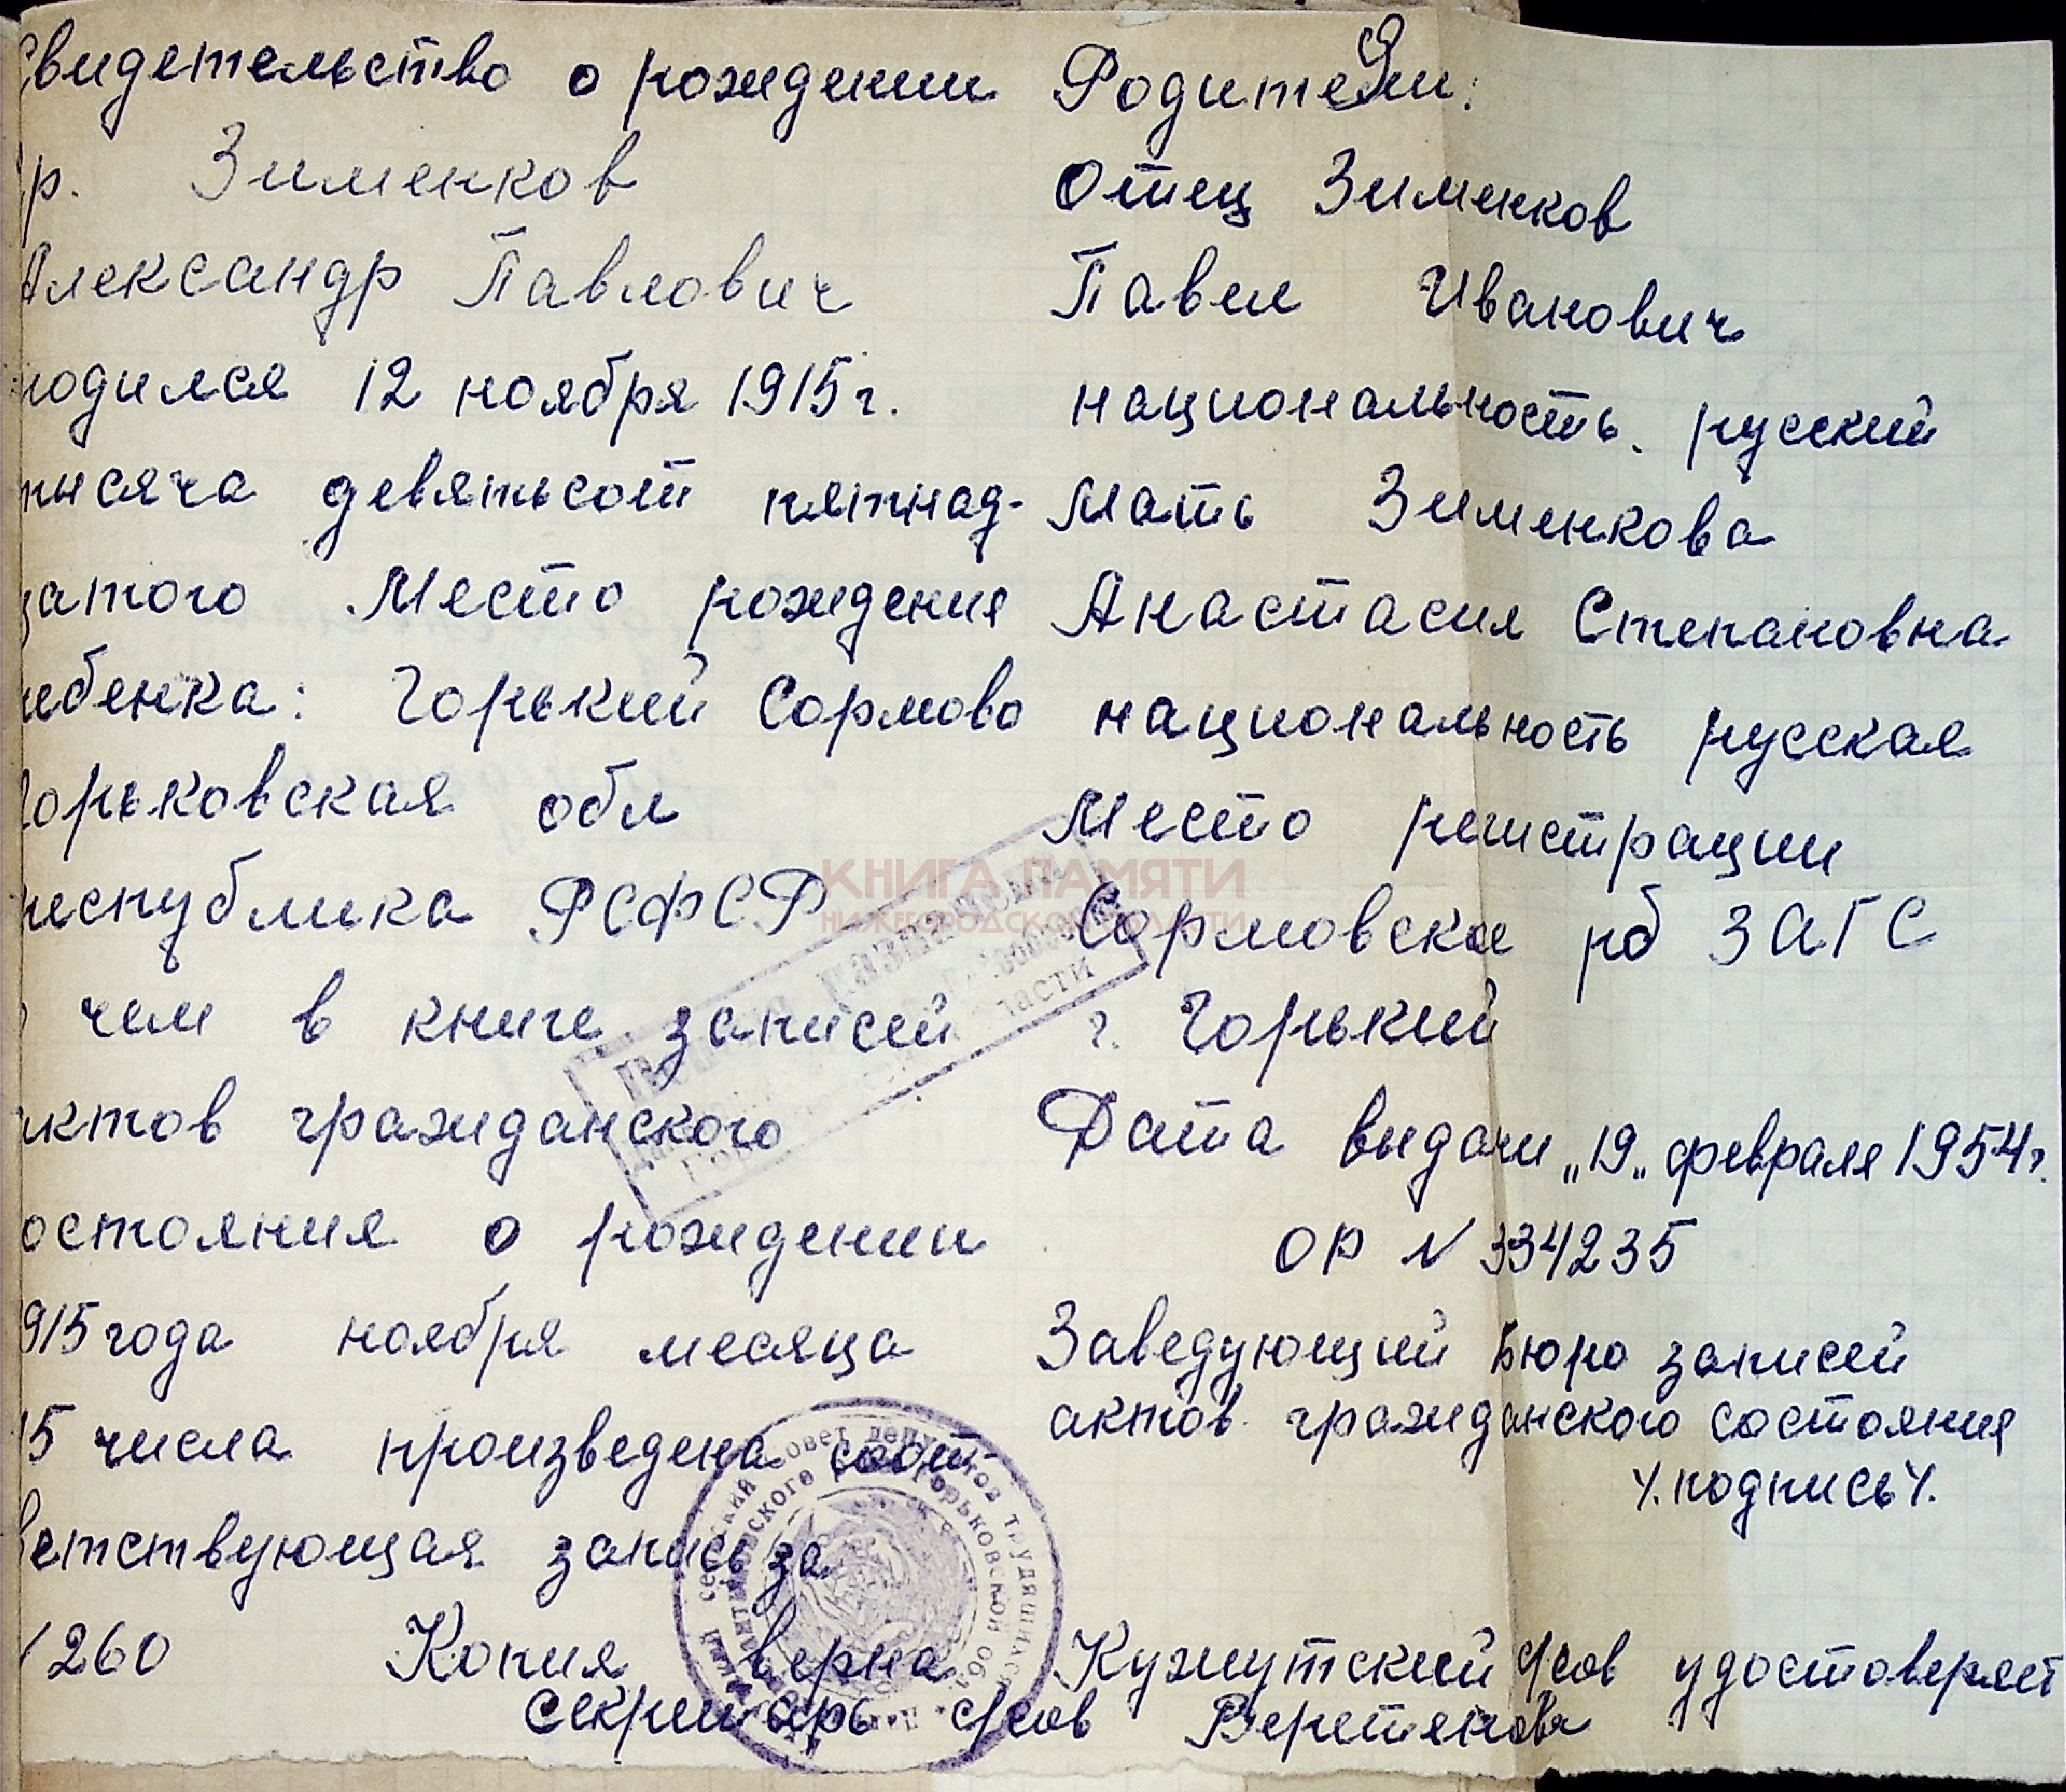 Свидетельство о рождении
гр. Зименков
Александр Павлович
родился 12 ноября 1915 г.
тысяча девятьсот пятнад-
цатого Место рождения
ребенка: Горький Сормово
Горьковская обл
республика РСФСР
о чем в книге записей
актов гражданского
состояния о рождении
1915 года ноября месяца
15 числа произведена соот
ветствующая запись за
260 Копия верна
секретарь с/сов Веретенова
Родители:
Отец Зименков
Павел Иванович
национальность. русский
Мать Зименкова
Анастасия Степановна
национальность русская
Место регистрации
Сормовское рб ЗАГС
г. Горький
Дата выдачи „19„ февраля 1954 г.
ОР N 334235
Заведующий Бюро записей
актов гражданского состояния
/.подпись/.
Кужутский с/сов удостоверяет
КНИГА ПАМЯТИ
НИЖЕГОРОДСКОЙ ОБЛАСТИ